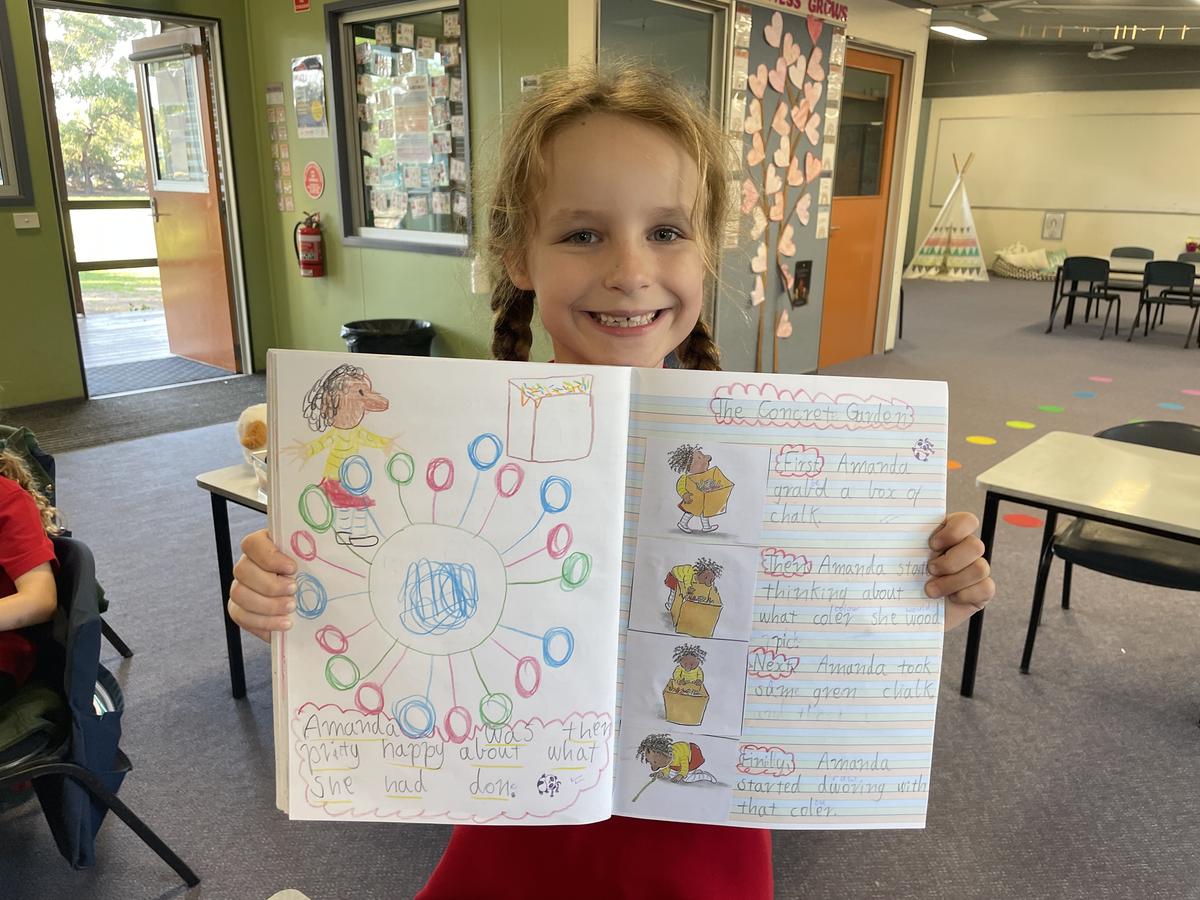 NESS GROWS
The Concret Garden
First Amanda
grabd a box of
chalk.
Then Amanda start
thinking about
colour would
what coler she wood
pic.
Next Amanda took
some gren chalk
Finily Amanda
started dworing with
that coler.
Amanda was then
prity happy about what
she had don.